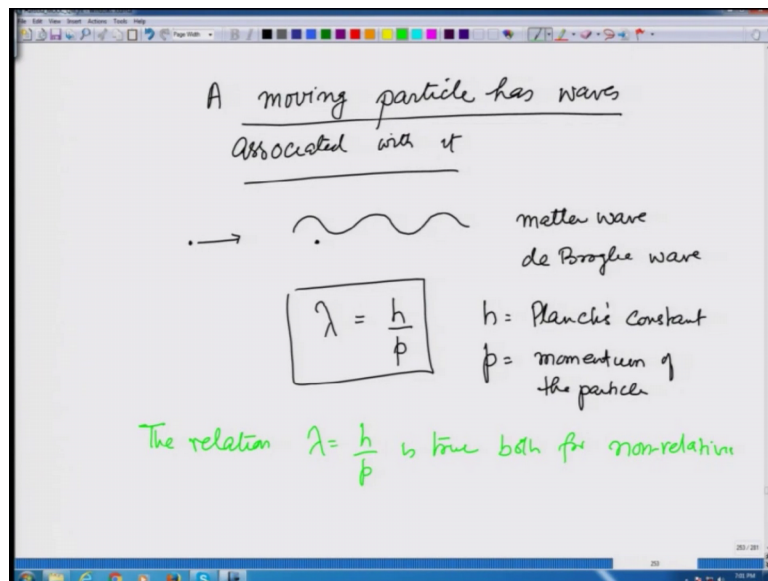 File Edit View Insert Actions Tools Help
Page Width
A moving particle has waves
associated with it
matter wave
de Broglie wave
λ = h/p
h = Planck's constant
p = momentum of
the particle
The relation λ = h/p is true both for non-relativis
253 / 281
253
7:01 PM